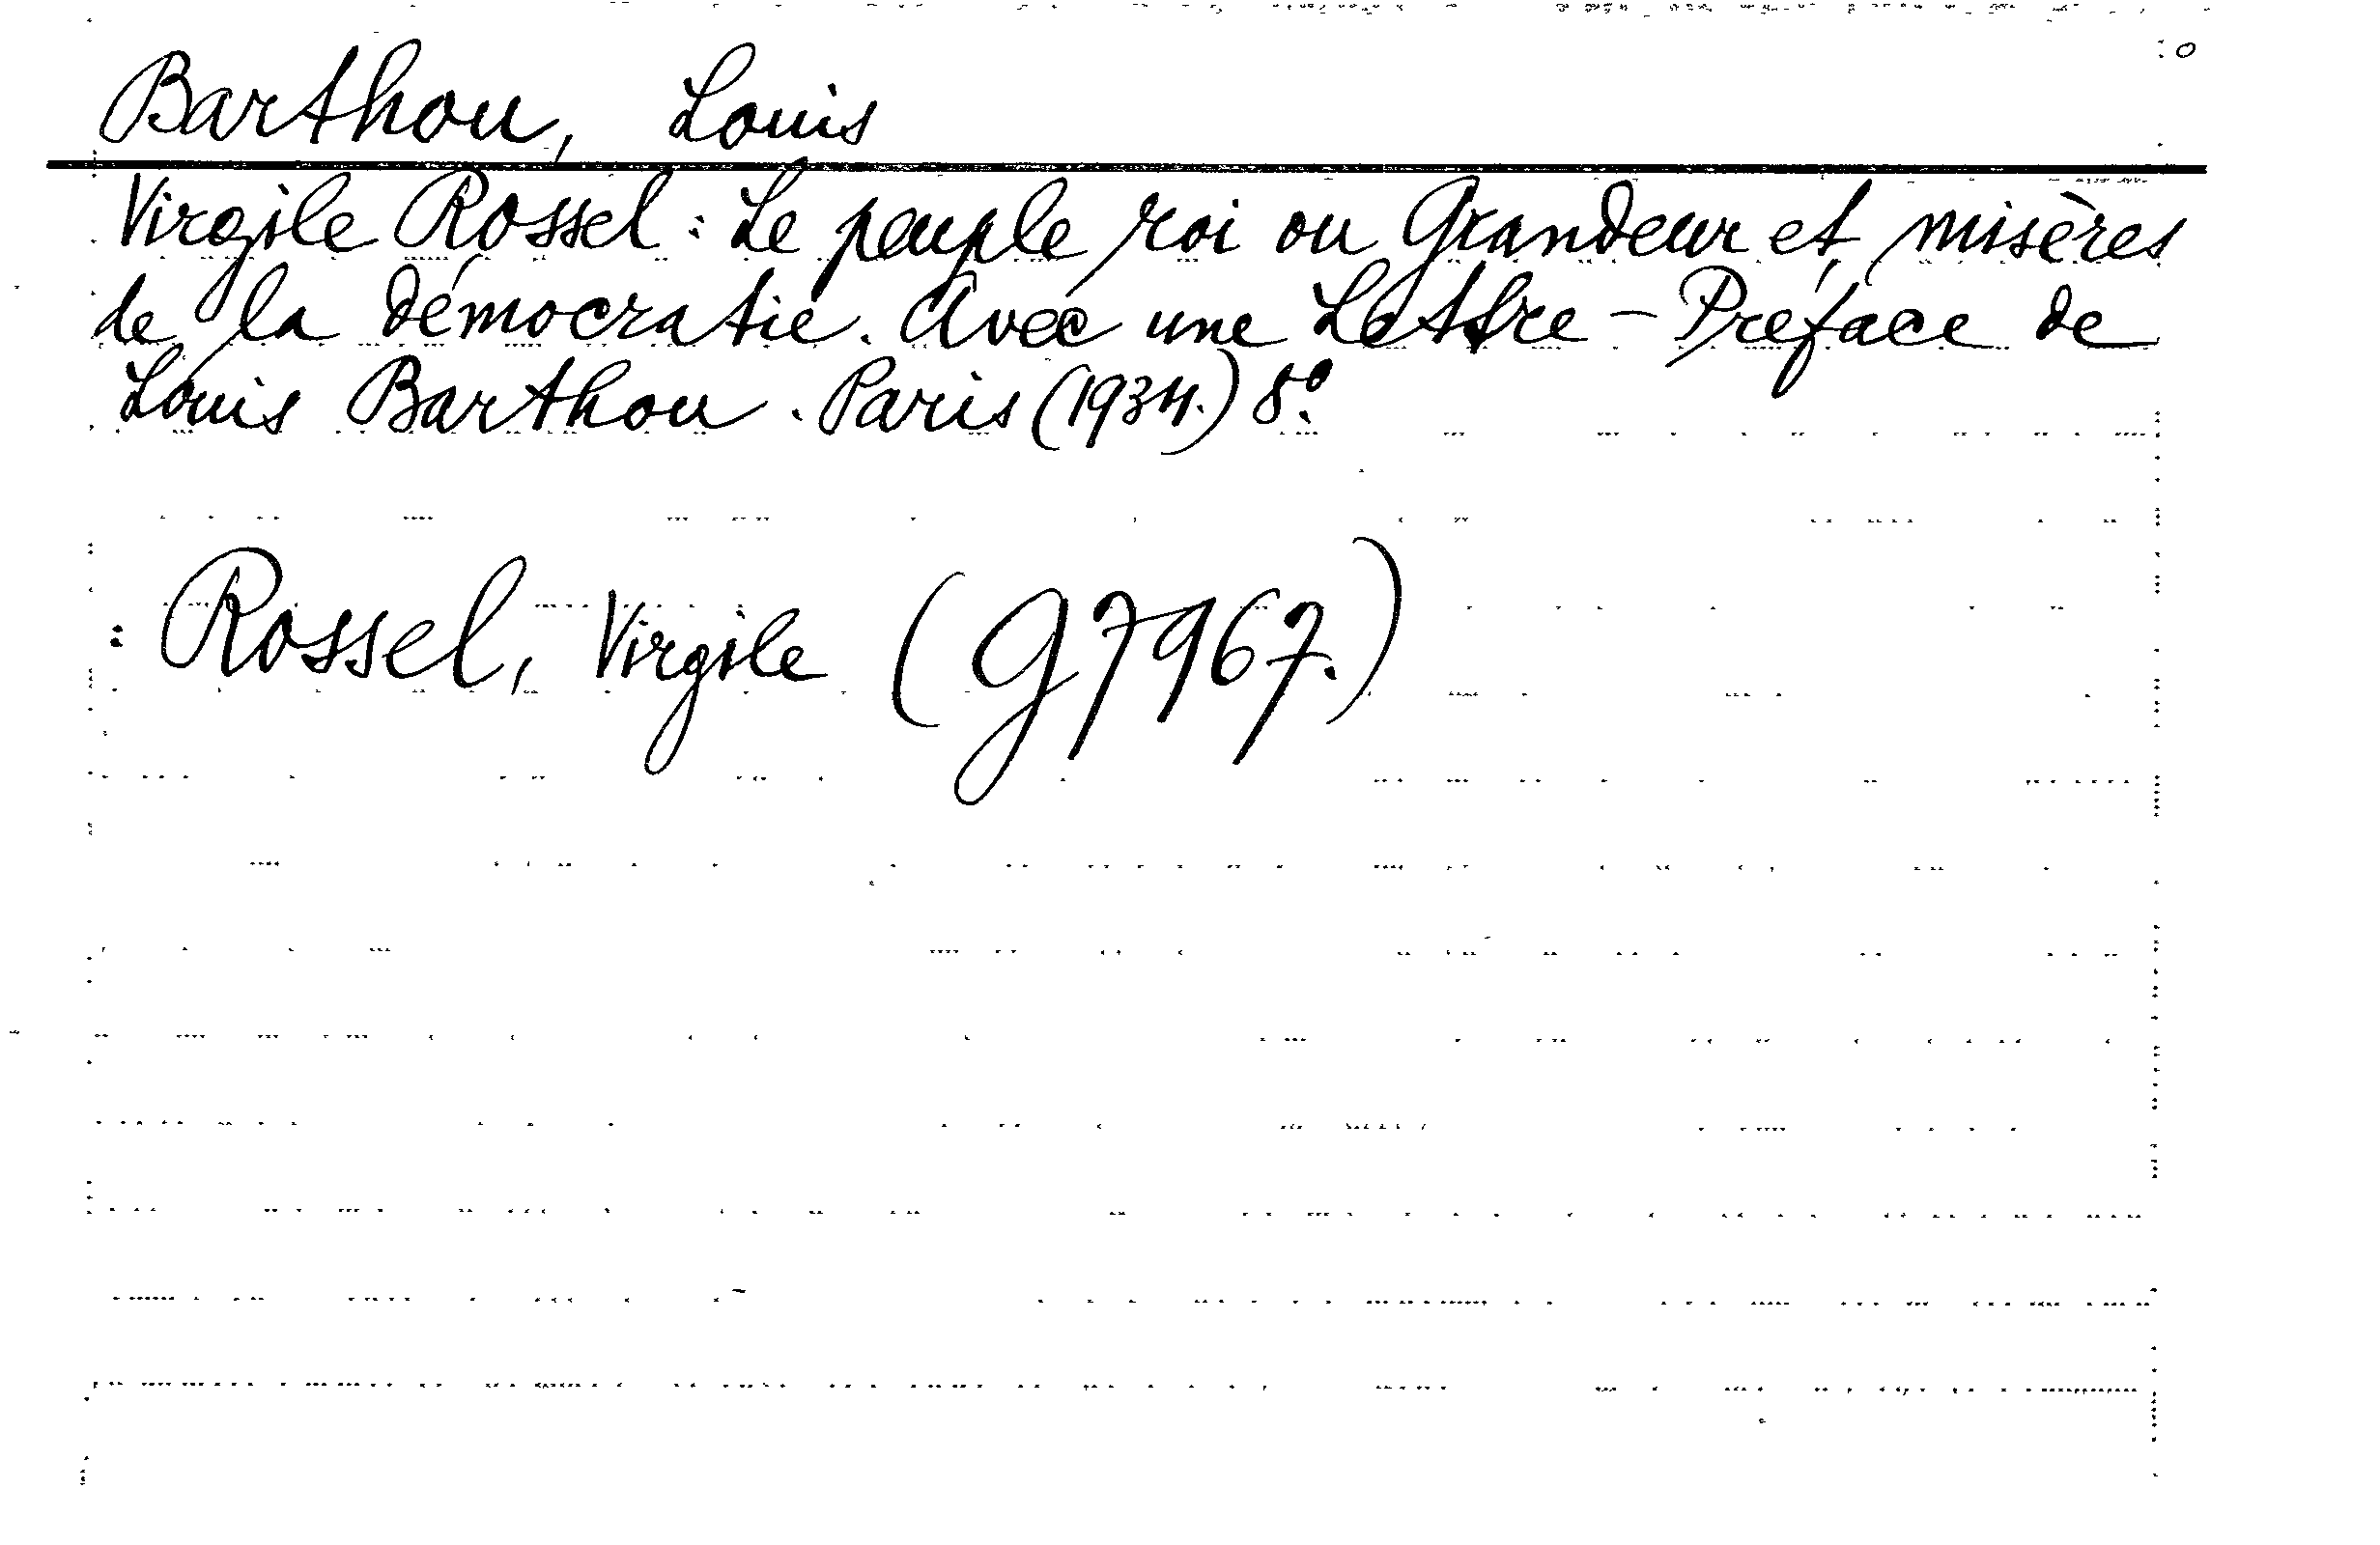 Barthou, Louis
Virgile Rossel: Le peuple roi ou Grandeur et misères
de la démocratie. Avec une Lettre-Préface de
Louis Barthou. Paris (1934.) 8º.
: Rossel, Virgile (G7967.)